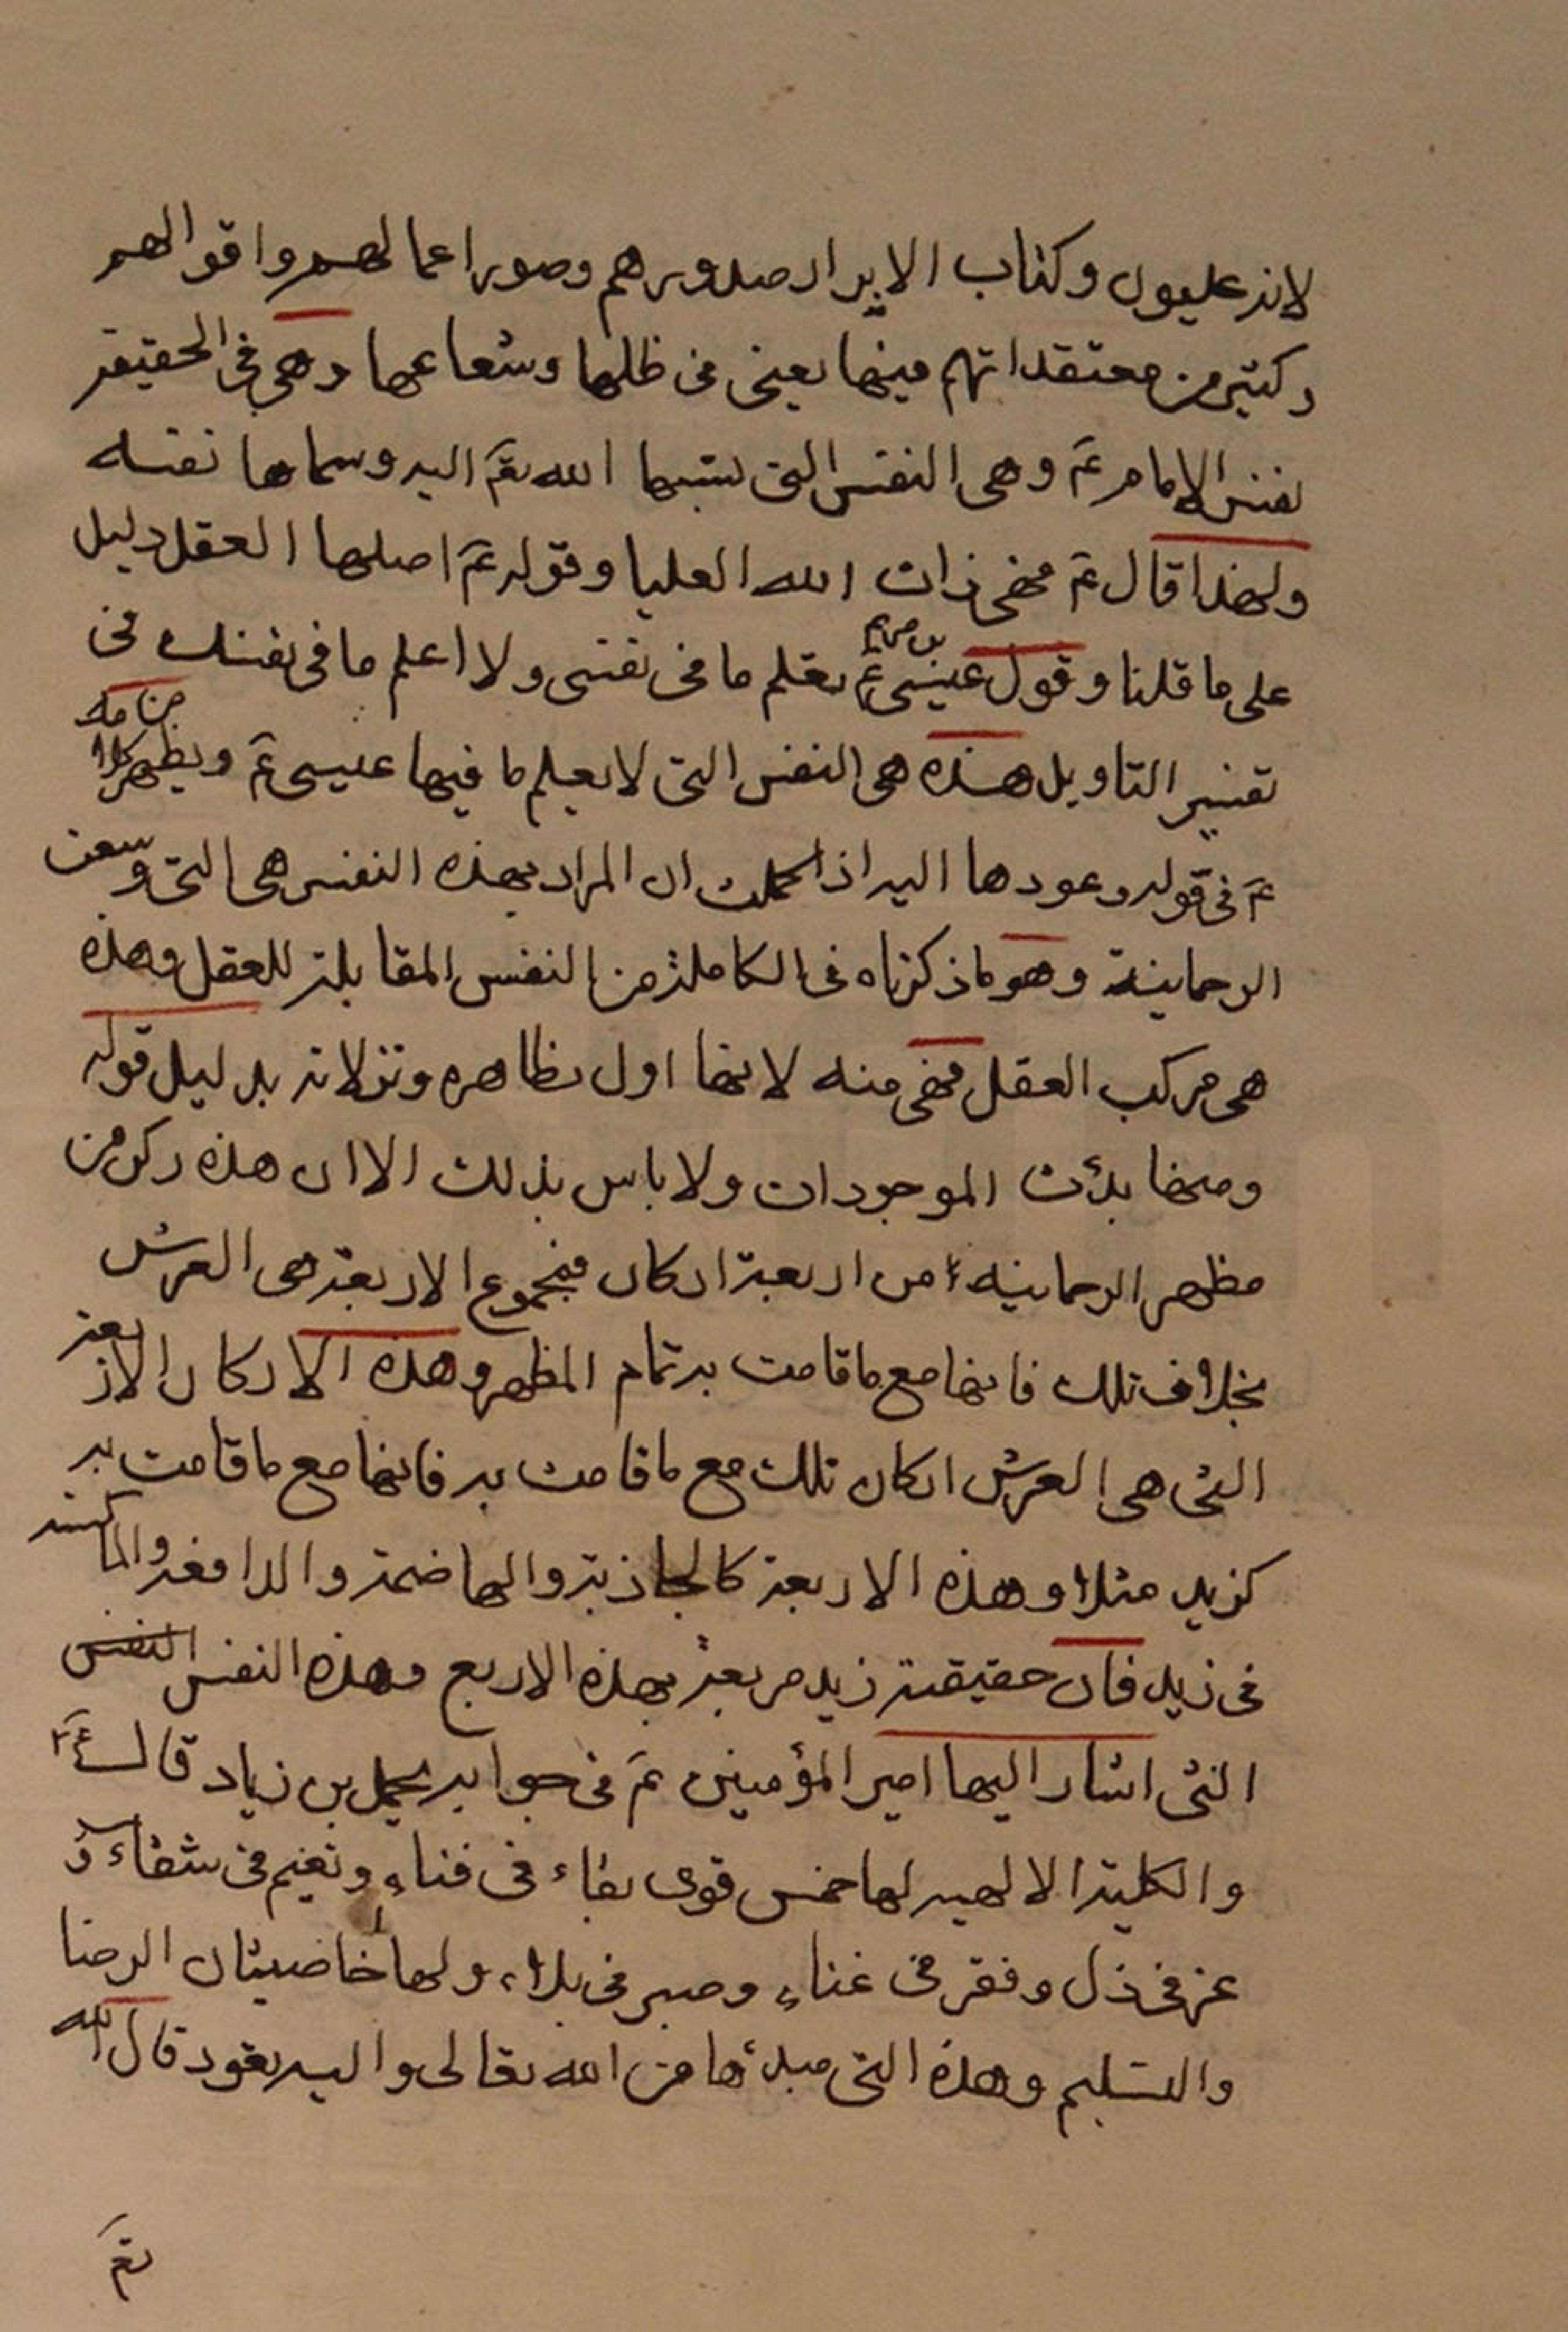 لانه عليون وكتاب الابرار صدورهم وصور اعمالهم واقوالهم
وكثير من معتقداتهم فيها يعنى فى ظلها وشعاعها وهى فى الحقيقة
نفس الامام عَ وهى النفس التى نسبها الله تعَ اليه وسماها نفسه
ولهذا قال عَ فهى ذات الله العليا وقوله عَ اصلها العقل دليل
على ما قلنا وقول عيسى بن مريم عَ تعلم ما فى نفسى ولا اعلم ما فى نفسك فى
تفسير التاويل هذه هى النفس التى لا يعلم ما فيها عيسى عَ ويظهر من كلامه
عَ فى قوله وعودها اليه اذا كملت ان المراد بهذه النفس هى التى وسعت
الرحمانية وهو ما ذكرناه فى الكاملة من النفس المقابلة للعقل وهذه
هى مركب العقل فهى منه لانها اول تظاهره وتنزلاته بدليل قوله
ومنها بدأت الموجودات ولا باس بذلك الا ان هذه ركن من
مظهر الرحمانية من اربعة اركان فمجموع الاربعة هى العرش
بخلاف تلك فانها مع ما قامت به تمام المظهر وهذه الاركان الاربعة
التى هى العرش اركان تلك مع ما قامت به فانها مع ما قامت به
كزيد مثلا وهذه الاربعة كالجاذبة والهاضمة والدافعة والماسكة
فى زيد فان حقيقة زيد مربعة بهذه الاربع وهذه النفس النفس
التى اشار اليها امير المؤمنين عَ فى جوابه كميل بن زياد قال عَ
والكلية الالهيه لها خمس قوى بقاء فى فناء ونعيم فى شقاء و
عز فى ذل وفقر فى غناء وصبر فى بلاء ولها خاصيتان الرضا
والتسليم وهذه التى مبدئها من الله تعالى واليه تعود قال الله
تعَ